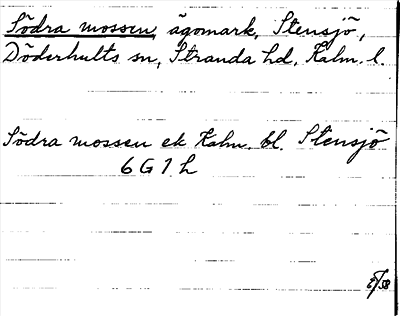 Södra mossen, ägomark, Stensjö,
Döderhults sn, Stranda hd, Kalm. l.
Södra mossen ek Kalm. bl. Stensjö
6G1h